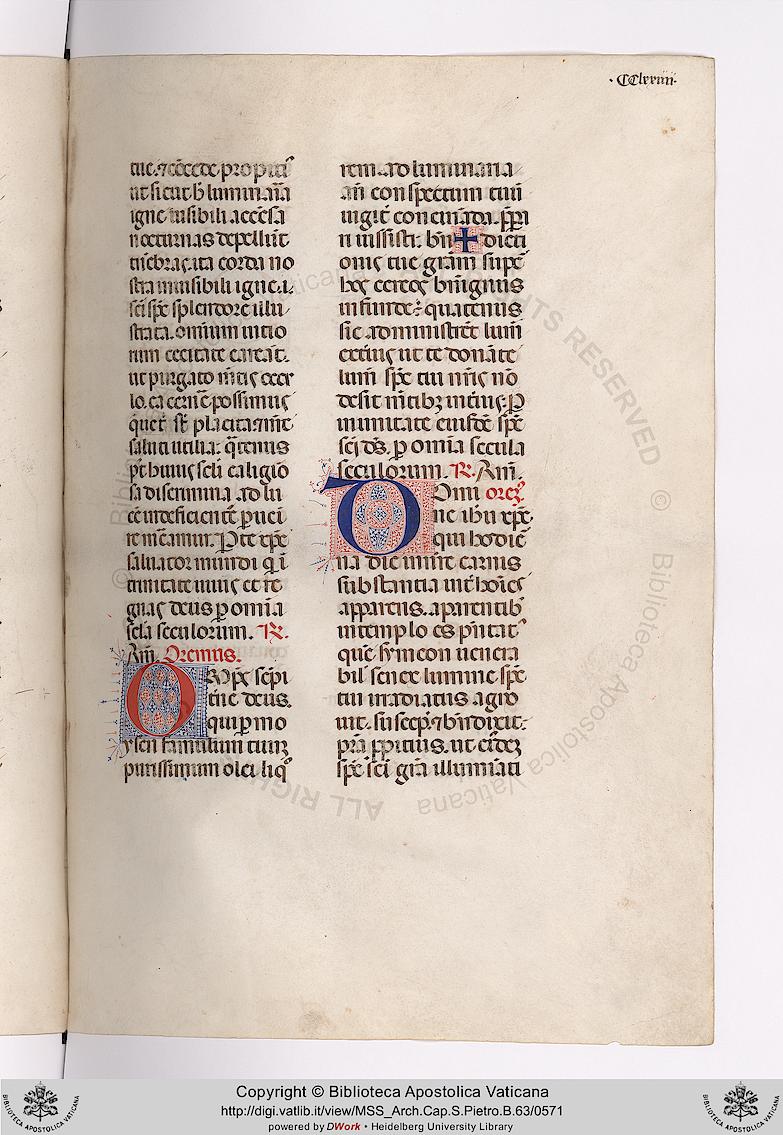 ·CClxxiiii·
tue. ⁊ cōcede propiti᷒
ut sicut h̄ luminaria
igne uisibili accēsa
nocturnas depellūt
tenebras. ita corda no
stra inuisibili igne. i.
sci sp̄s splendore illu
strata. omnium uitio
rum cecitate careāt.
ut purgato mētis ocu
lo. ea cernere possimus
que t̄ st̄ placita. ⁊ nr̄e
saluti utilia. q̄tenus
pt̄ huius sc̄li caligio
sa discrimina. ad lu
cē indeficientē perueni
re mēamur. P te xp̄e
saluator mundi q̄ i
trinitate uiuis et re
gnas deus p omīa
scl̄a seculorum. ℟.
Am̄. Oremus.
Omps sēpi
t̄ne deus.
qui p mo
ysen famulum tuuz
purissimum olei liq᷒
rem. ad luminaria
an̄ conspectum tuū
iugit̄ concinnāda. p̄pa
ri iussisti. bn̄ + dicti
onis tue gram̄ sup̄
hos cereos benignus
infunde: quatenus
sic administrēt lum̄
exterius ut te donāte
lum̄ sp̄s tui nr̄is nō
desit mentibz interius. P
in unitate eiusdē sp̄s
sci d̄s. p omīa secula
seculorum. ℟. Am̄.
Domi orez̄.
ne ihu xp̄e
qui hodie
na die in nr̄e carnis
substantia int̄ hoīes
apparens. a parentib᷒
in templo es p̄ntat᷒
quē symeon uenera
bil᷒ senex lumine sp̄s
tui irradiatus. agno
uit. suscep̄. ⁊ bn̄dixit.
pr̄a p̄pitius. ut ei᷒dez
sp̄s sci gr̄a illumīati
Copyright © Biblioteca Apostolica Vaticana
http://digi.vatlib.it/view/MSS_Arch.Cap.S.Pietro.B.63/0571
powered by DWork • Heidelberg University Library
BIBLIOTECA APOSTOLICA VATICANA
BIBLIOTECA APOSTOLICA VATICANA
© Biblioteca Apostolica Vaticana ALL RIGHTS RESERVED